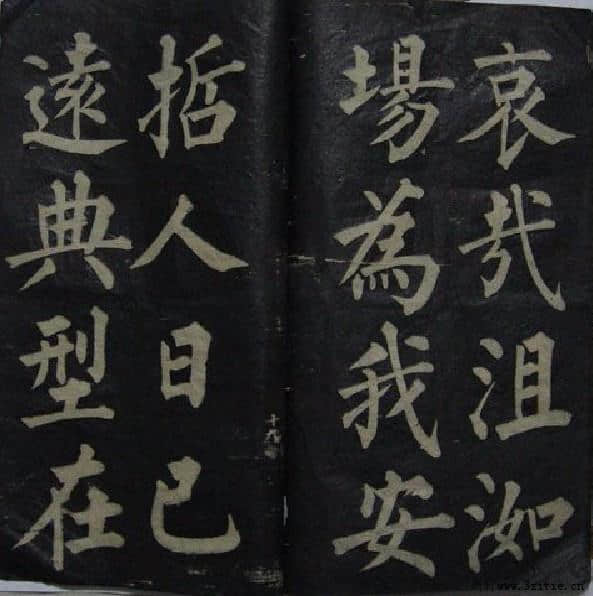 哀哉沮洳
場為我安
哲人日已
遠典型在
十九
www.3zitie.cn